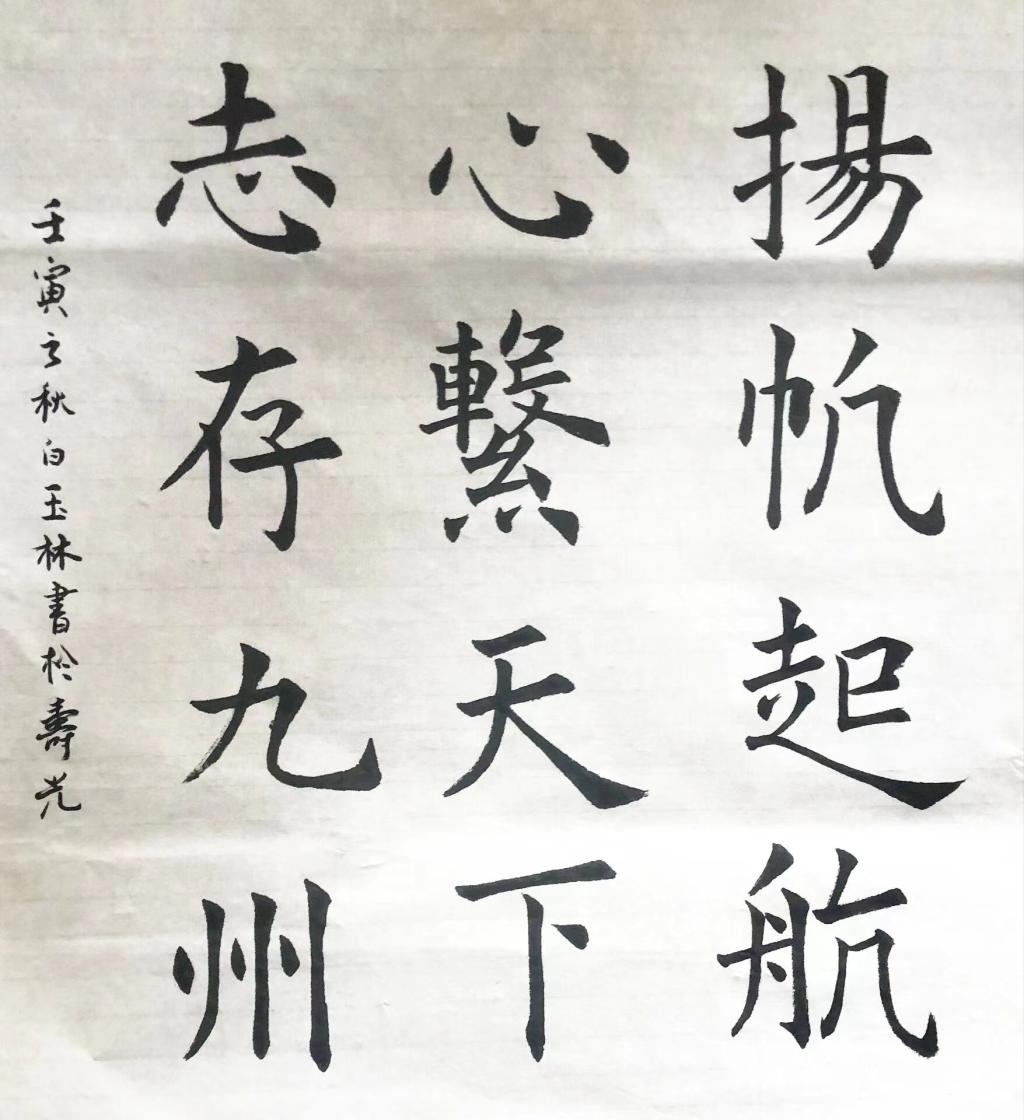 揚帆起航
心繫天下
志存九州
壬寅之秋白玉林書於壽光